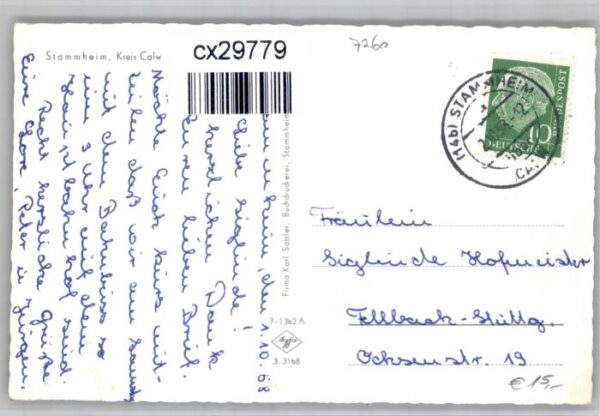 Stammheim, Kreis Calw
cx29779
7260
(14b) STAMMHEIM
10
DEUTSCHE
BUNDESPOST
den 1.10.58
Liebe Siglinde!
Herzlichen Dank
für den lieben Brief.
Möchte Euch kurz mit-
teilen daß wir am Samst.
mit dem Bahnbus so
um 3 Uhr auf dem
Hauptbahnhof sind.
Recht herzliche Grüße
Eure Peter u. Jürgen.
Firma Karl Sattler, Buchdruckerei, Stammheim
7-1362A
Agfa
3.3168
Fräulein
Siglinde Hofmeister
Fellbach-Stuttg.
Ochsenstr. 19
€ 15,-